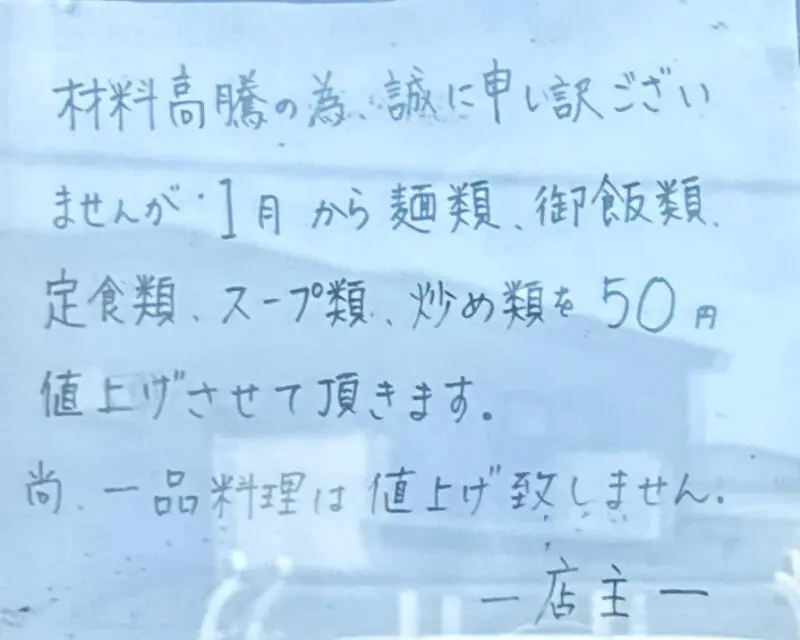 材料高騰の為、誠に申し訳ござい
ませんが、1月から麺類、御飯類、
定食類、スープ類、炒め類を50円
値上げさせて頂きます。
尚、一品料理は値上げ致しません。
ー店主ー